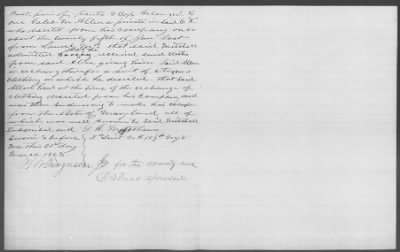 Coat, pair of pants & Cap belonged to
one Caleb M. Allen a private in said Co "K"
who deserted from his company on or
about the twenty fifth of Jany last
from Laurel that said Mitchell
admitted having received said clothes
from said Allen giving him said Allen
in exchange therefor a suit of citizens
clothing in which he deserted that said
Allen had at the time of the exchange of
clothing deserted from his Company and
was then endeavoring to make his escape
from the State of Maryland all of
which was well known to said Mitchell
Subscribed and
Sworn to before 2d Lieut Co K
me this 21st day
J.P. for the county and
District aforesaid